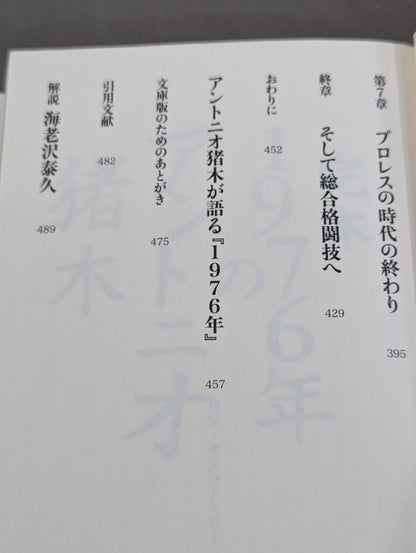 第7章 プロレスの時代の終わり 395
終章 そして総合格闘技へ 429
おわりに 452
アントニオ猪木が語る『1976年』 457
文庫版のためのあとがき 475
引用文献 482
解説 海老沢泰久 489
完本
1976年の
アントニオ
猪木